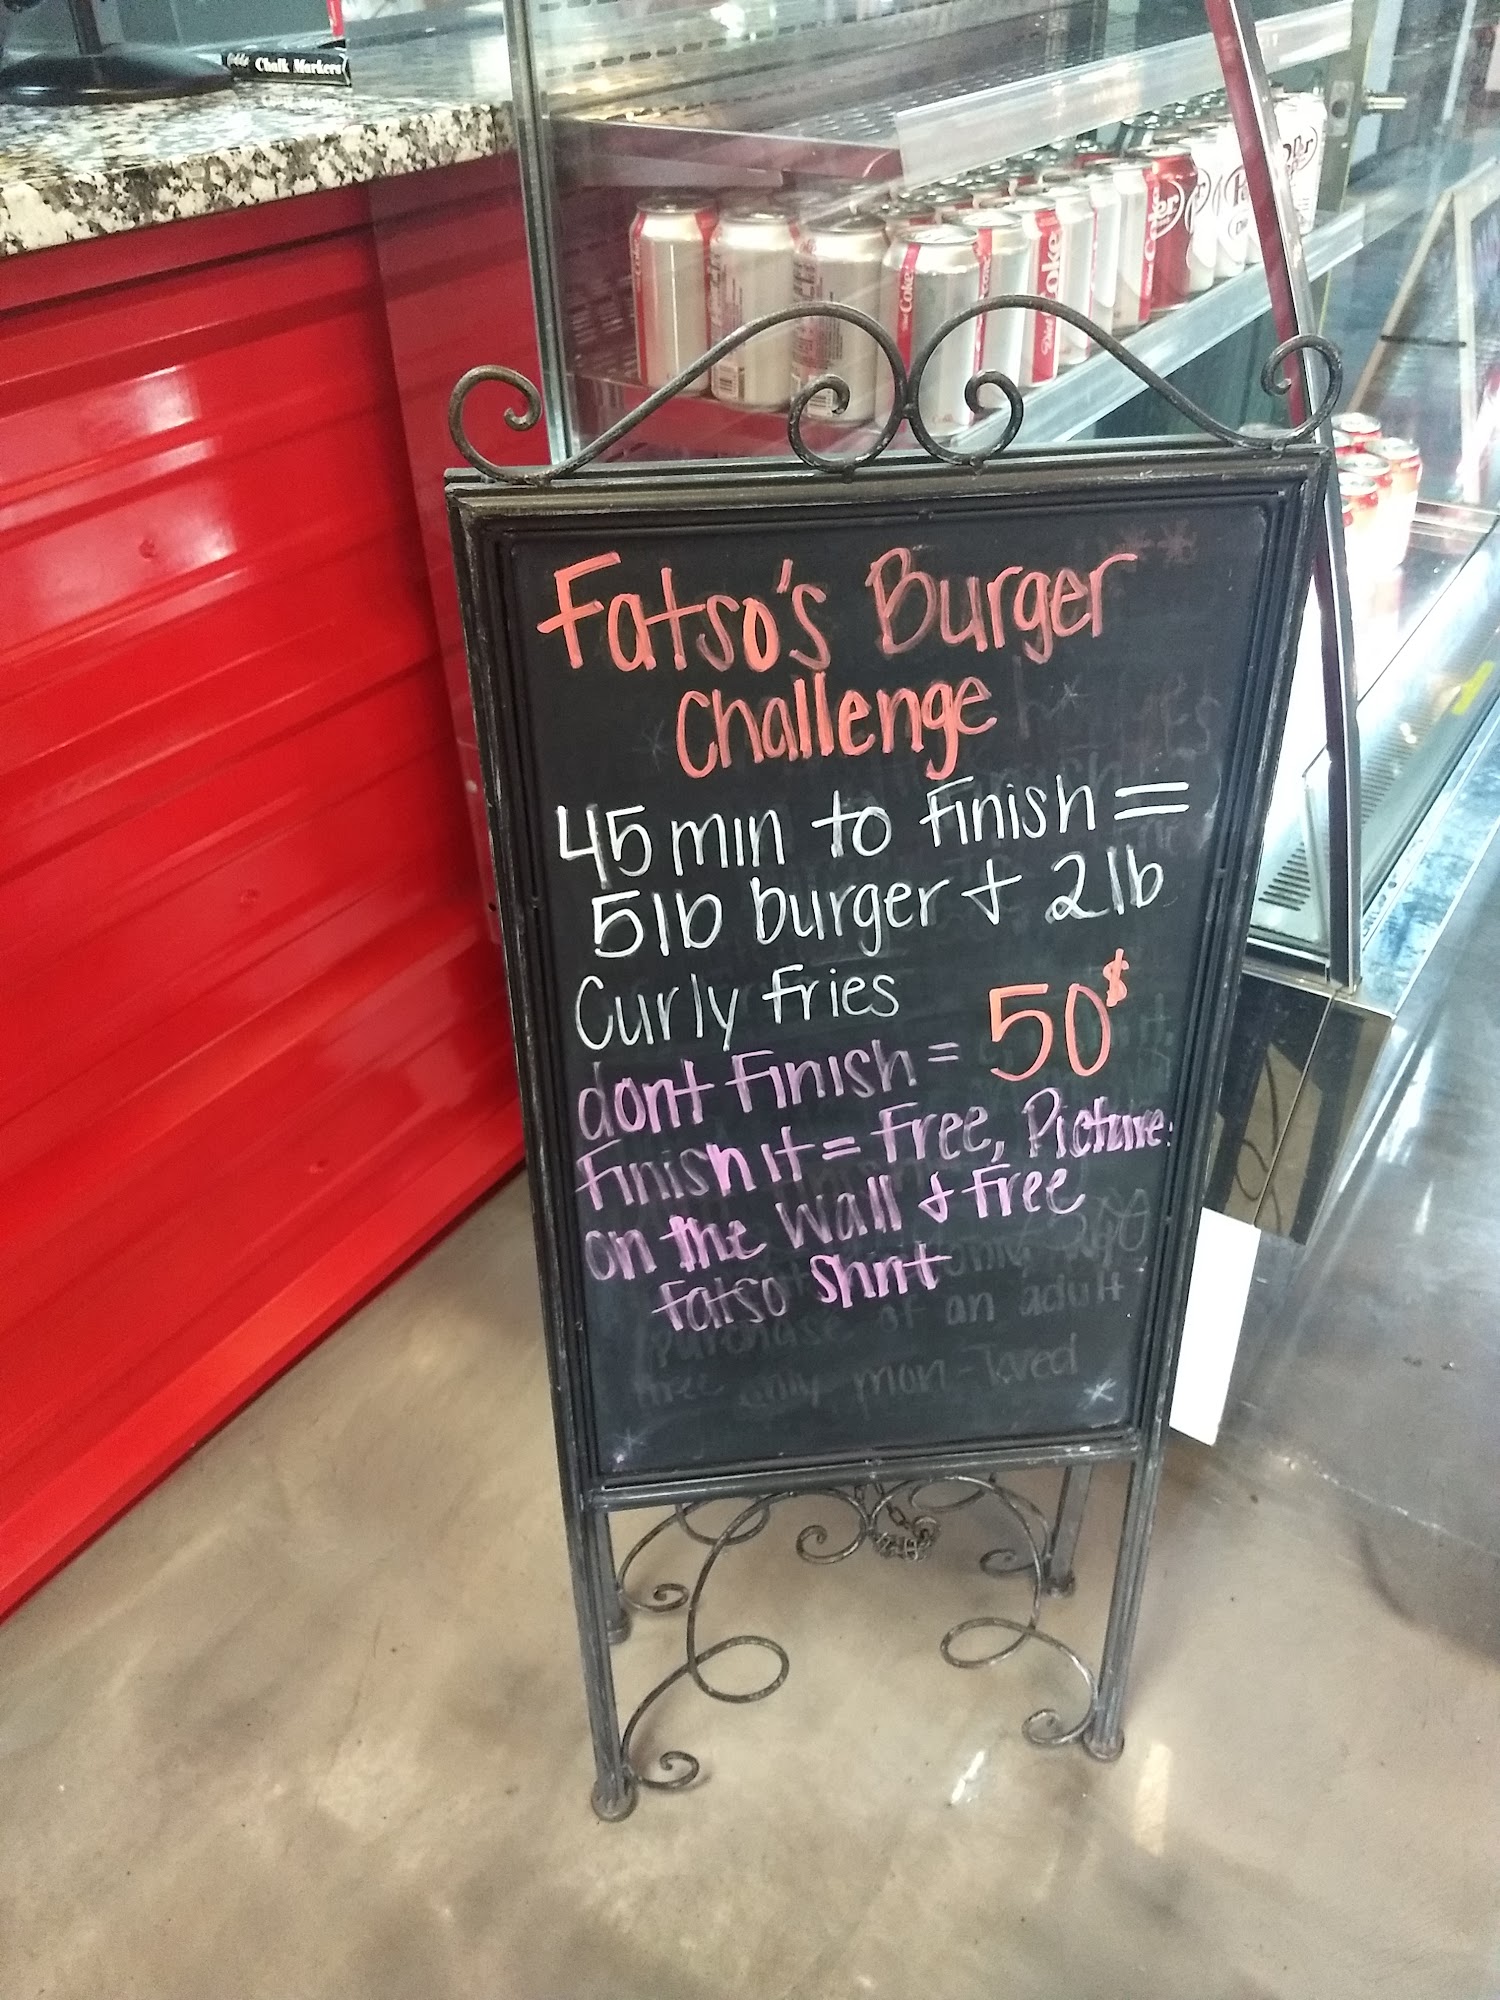 Chalk Markers
Coke
Diet Coke
Fatso's Burger
Challenge
45 min to Finish =
5lb burger + 2lb
Curly Fries
dont Finish = 50$
Finish it = Free, Picture
on the wall & Free
Fatso Shirt
purchase of an adult
free only mon-